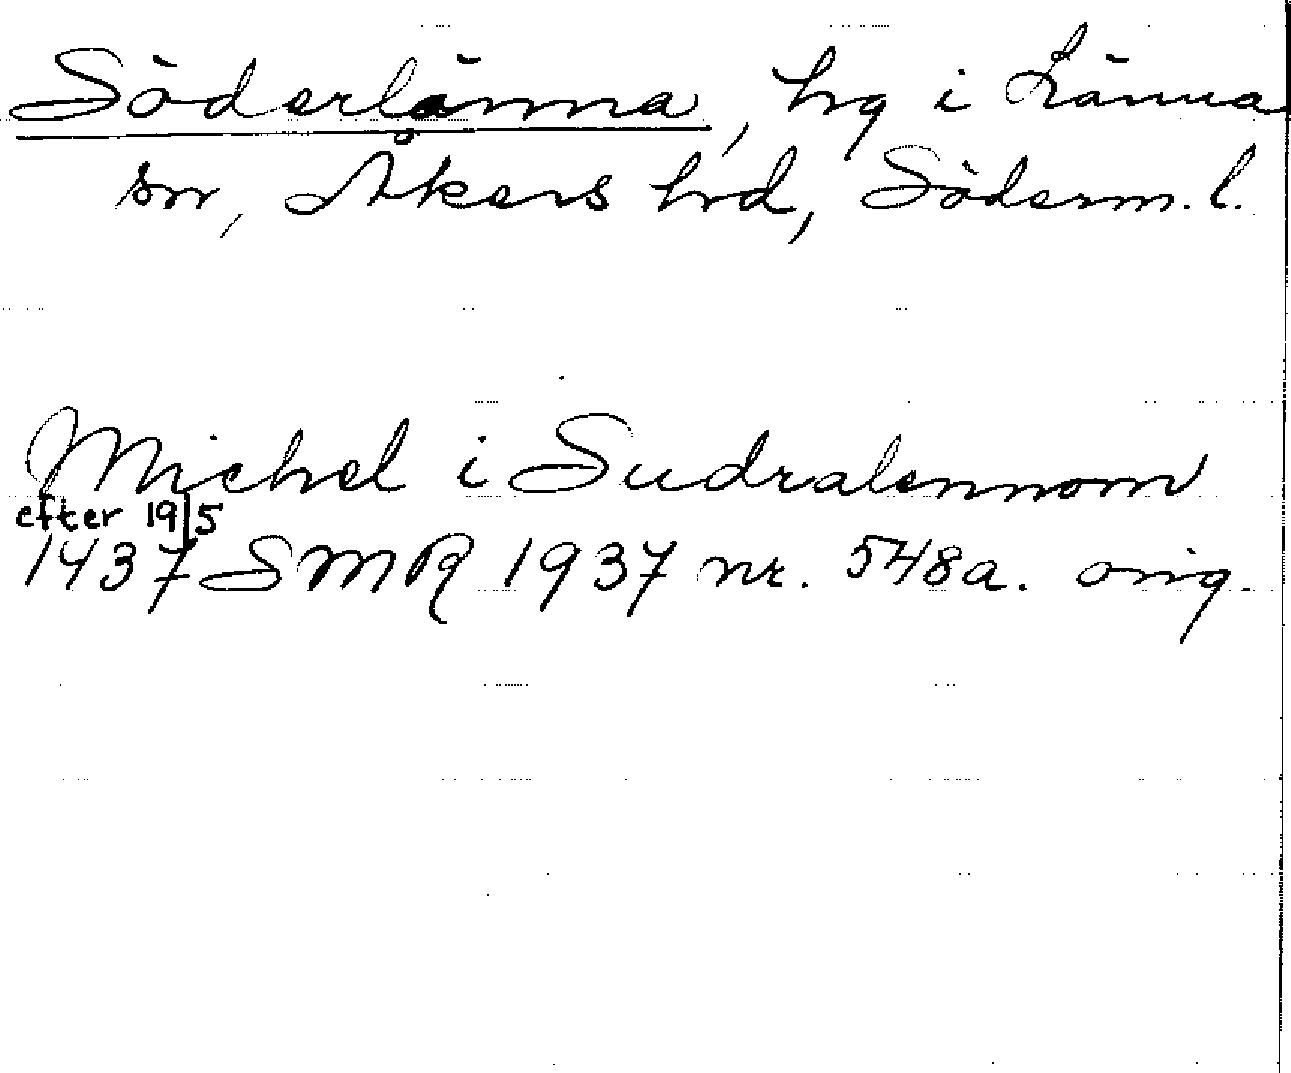 Söderlänna, hg i Länna
sn, Åkers hrd, Söderm. l.
Michel i Sudralennom
efter 19/5
1437 SMR 1937 nr. 548a. orig.